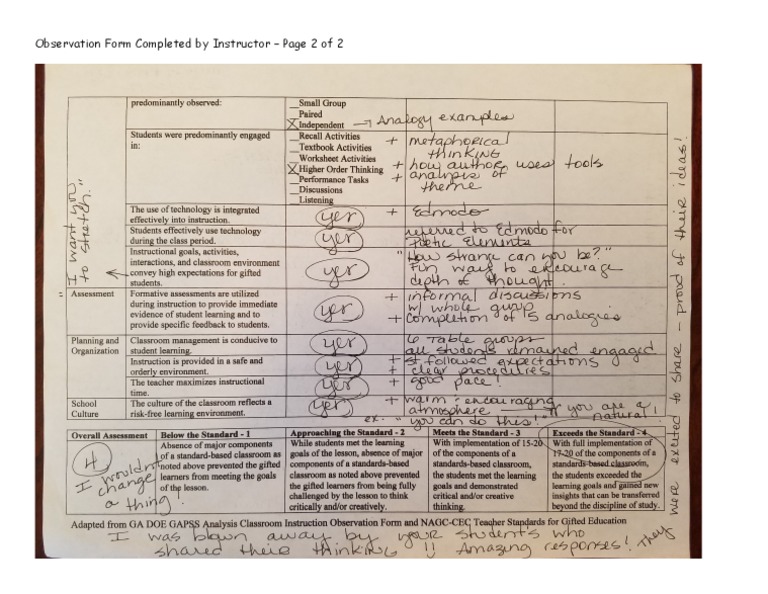 Observation Form Completed by Instructor – Page 2 of 2
predominantly observed:
__Small Group
__Paired
X Independent → Analogy examples
Students were predominantly engaged in:
__Recall Activities
__Textbook Activities
__Worksheet Activities
X Higher Order Thinking
__Performance Tasks
__Discussions
__Listening
+ metaphorical
thinking
+ how author uses tools
+ analysis of
theme
The use of technology is integrated
effectively into instruction.
yes
+ Edmodo
Students effectively use technology
during the class period.
yes
referred to Edmodo for
Poetic Elements
Instructional goals, activities,
interactions, and classroom environment
convey high expectations for gifted
students.
yes
"How strange can you be?"
Fun way to encourage
depth of thought.
I want you
to stretch."
Assessment
Formative assessments are utilized
during instruction to provide immediate
evidence of student learning and to
provide specific feedback to students.
yes
+ informal discussions
w/ whole group
+ completion of 5 analogies
Planning and
Organization
Classroom management is conducive to
student learning.
yes
6 Table groups
all students remained engaged
Instruction is provided in a safe and
orderly environment.
yes
+ st. followed expectations
+ clear procedures
The teacher maximizes instructional
time.
yes
+ good pace!
School
Culture
The culture of the classroom reflects a
risk-free learning environment.
yes
+ warm & encouraging
atmosphere — "If you are a
natural!
ex. "you can do this!"
Overall Assessment
Below the Standard - 1
Approaching the Standard - 2
Meets the Standard - 3
Exceeds the Standard - 4
4
I wouldn't
change
a thing!
Absence of major components
of a standard-based classroom as
noted above prevented the gifted
learners from meeting the goals
of the lesson.
While students met the learning
goals of the lesson, absence of major
components of a standards-based
classroom as noted above prevented
the gifted learners from being fully
challenged by the lesson to think
critically and/or creatively.
With implementation of 15-20
of the components of a
standards-based classroom,
the students met the learning
goals and demonstrated
critical and/or creative
thinking.
With full implementation of
17-20 of the components of a
standards-based classroom,
the students exceeded the
learning goals and gained new
insights that can be transferred
beyond the discipline of study.
Adapted from GA DOE GAPSS Analysis Classroom Instruction Observation Form and NAGC-CEC Teacher Standards for Gifted Education
I was blown away by your students who
shared their thinking!! Amazing responses! They
were excited to share – proud of their ideas!